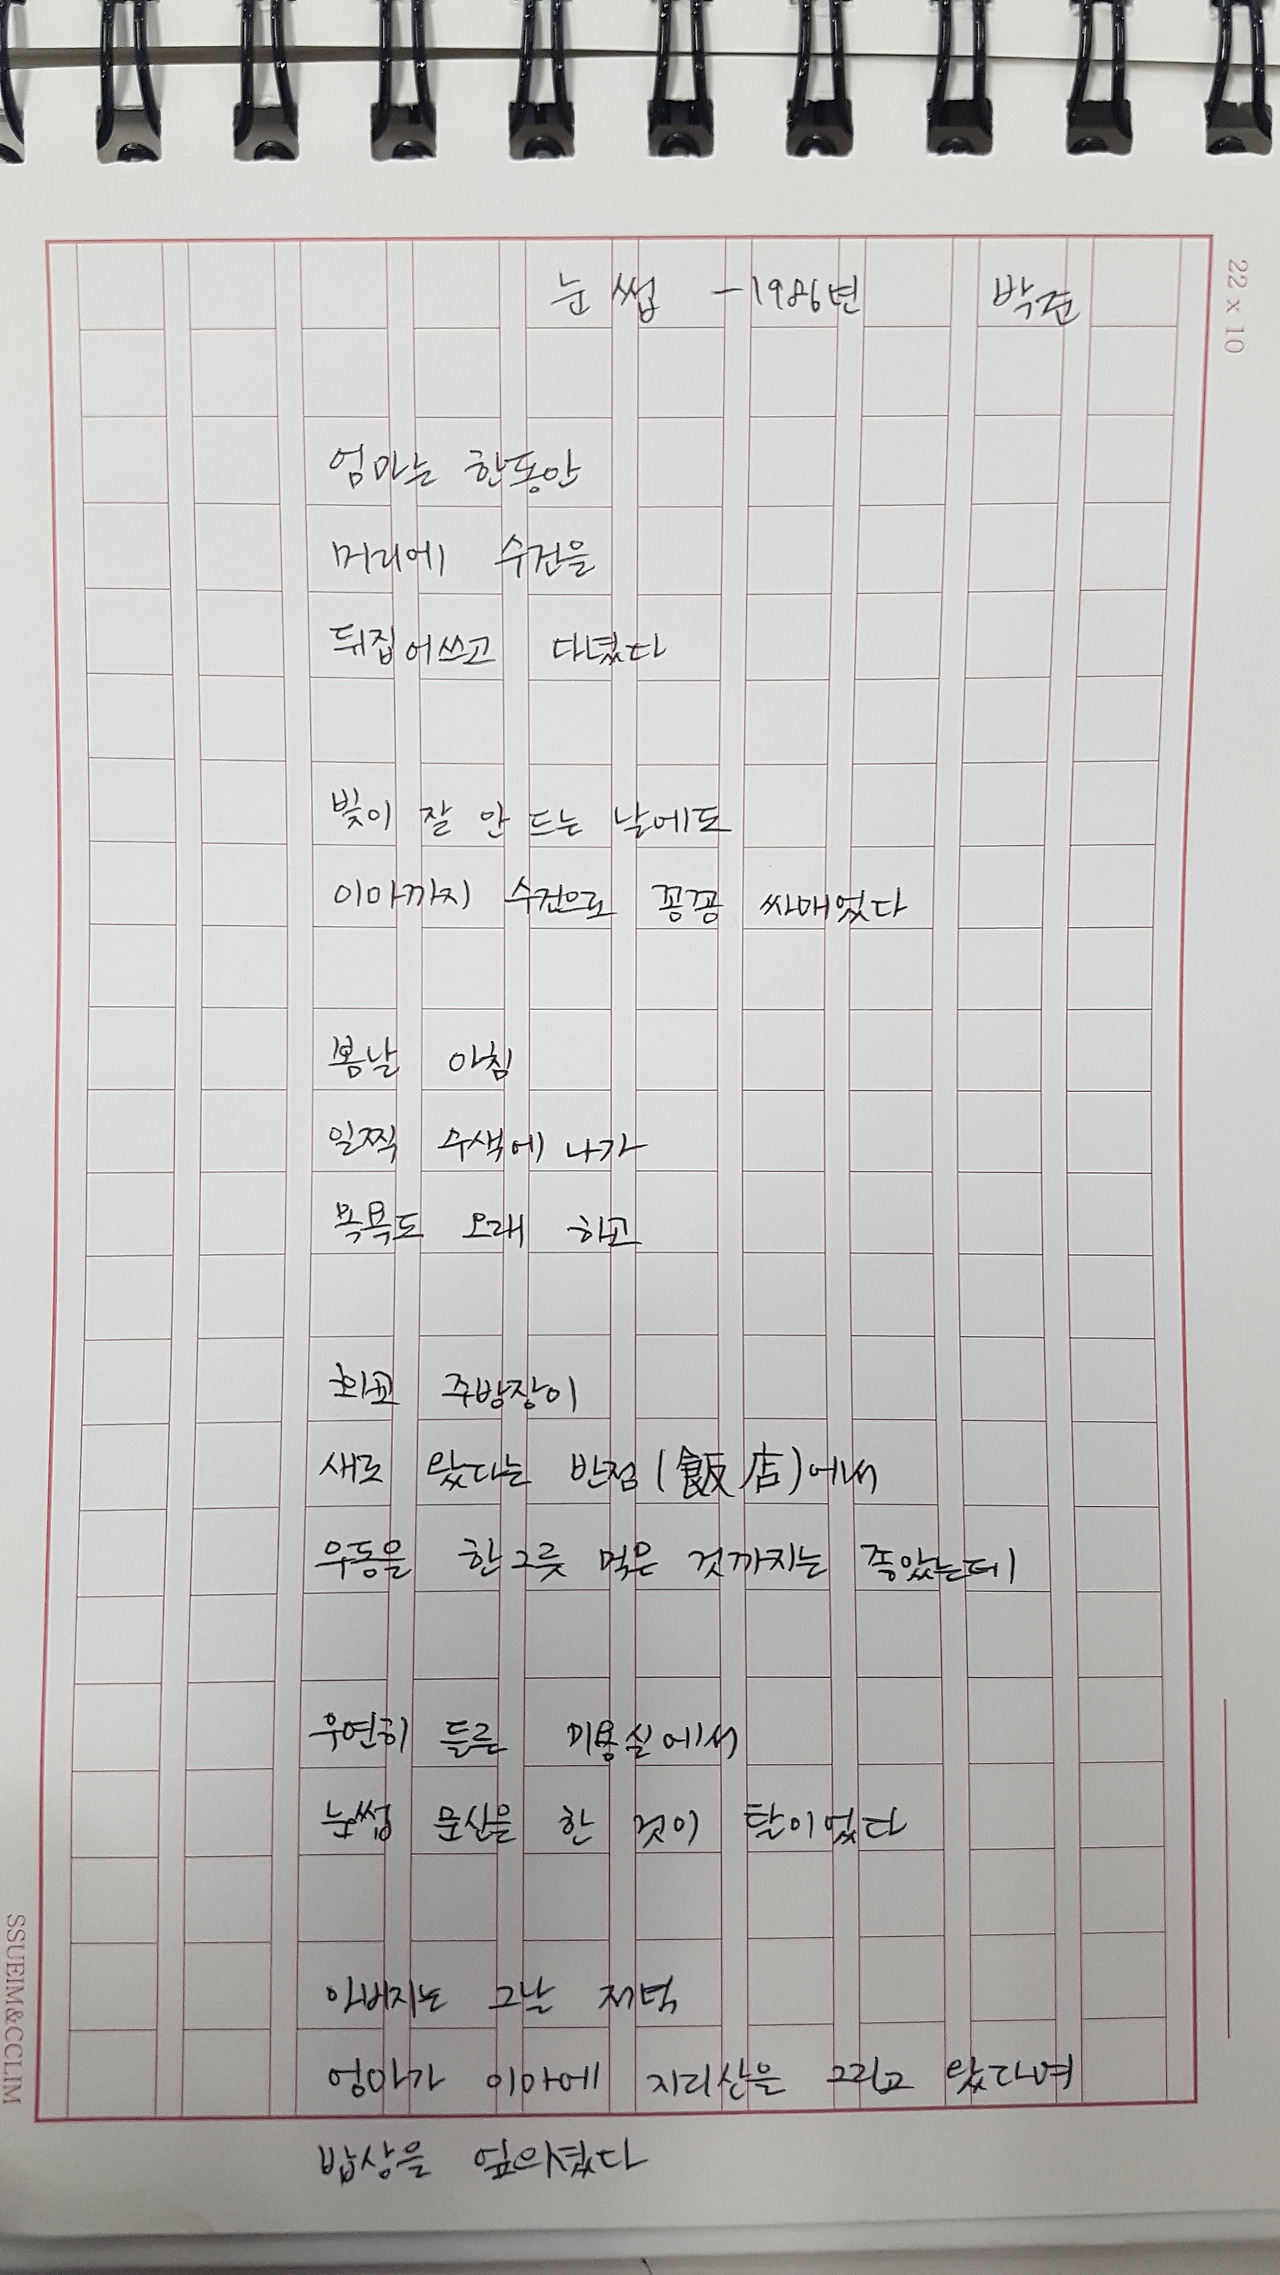 눈썹 -1986년 박준
22 x 10
엄마는 한동안
머리에 수건을
뒤집어쓰고 다녔다
빛이 잘 안 드는 날에도
이마까지 수건으로 꽁꽁 싸매었다
봄날 아침
일찍 수색에 나가
목욕도 오래 하고
화교 주방장이
새로 왔다는 반점(飯店)에서
우동을 한그릇 먹은 것까지는 좋았는데
우연히 들른 미용실에서
눈썹 문신을 한 것이 탈이었다
아버지는 그날 저녁
엄마가 이마에 지리산을 그리고 왔다며
밥상을 엎으셨다
SSUEIM&CCLIM